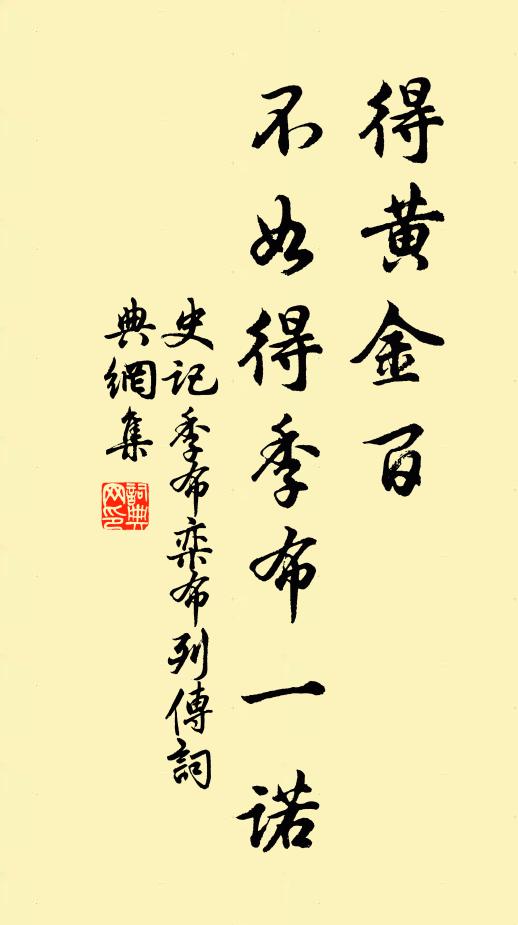 得黄金百
不如得季布一诺
史记季布栾布列傳詞
典網集
詞典网印